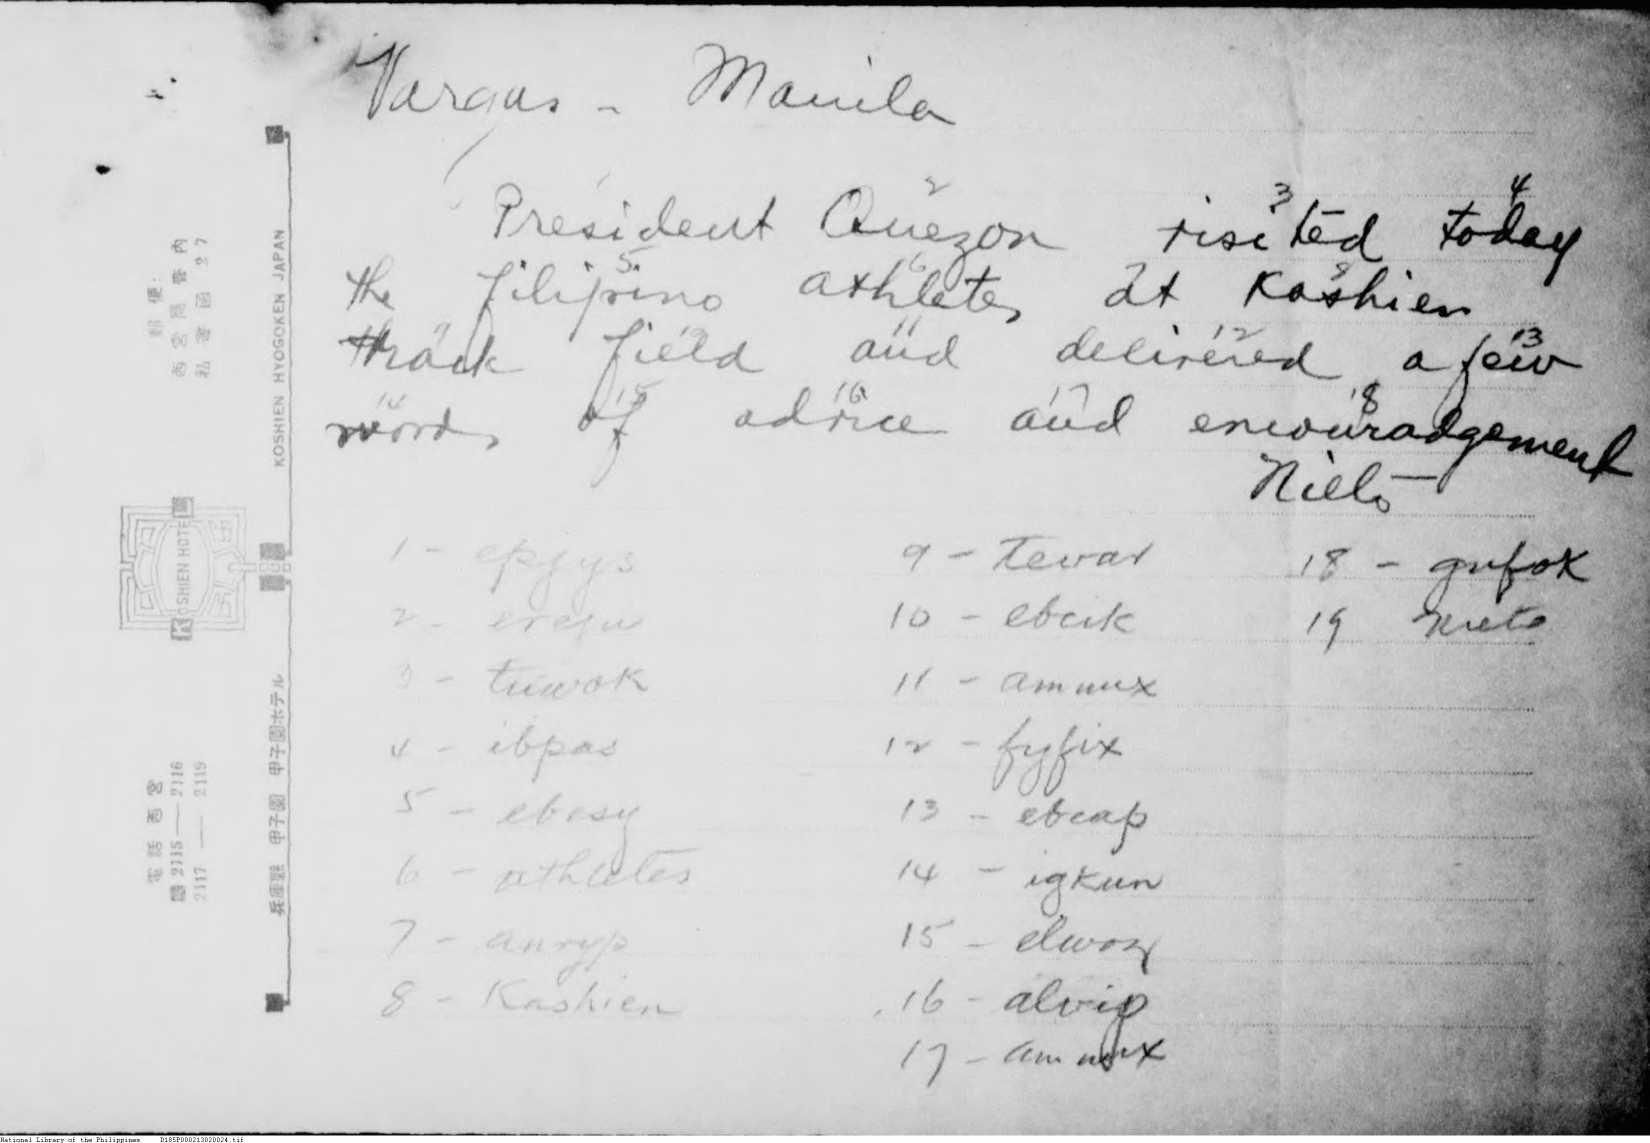 Vargas - Manila
1 2 3 4
President Quezon visited today
5 6 7 8
the filipino athletes at Kashien
9 10 11 12 13
thrack field and delivered a few
14 15 16 17 18
words of advice and encouradgement
Nieto
1 - epjys
2 - erequ
3 - tuwok
4 - ibpas
5 - ebesy
6 - athletes
7 - anryp
8 - Kashien
9 - tevar
10 - ebcik
11 - ammux
12 - fyfix
13 - ebcap
14 - igkun
15 - elwoz
16 - alvip
17 - ammux
18 - gufok
19 Nieto
KOSHIEN HYOGOKEN JAPAN
KOSHIEN HOTEL
兵庫縣 甲子園 甲子園ホテル
郵便:
西宮局管内
私書函 27
電話西宮
2115 — 2116
2117 — 2119
National Library of the Philippines D185P000213020024.tif